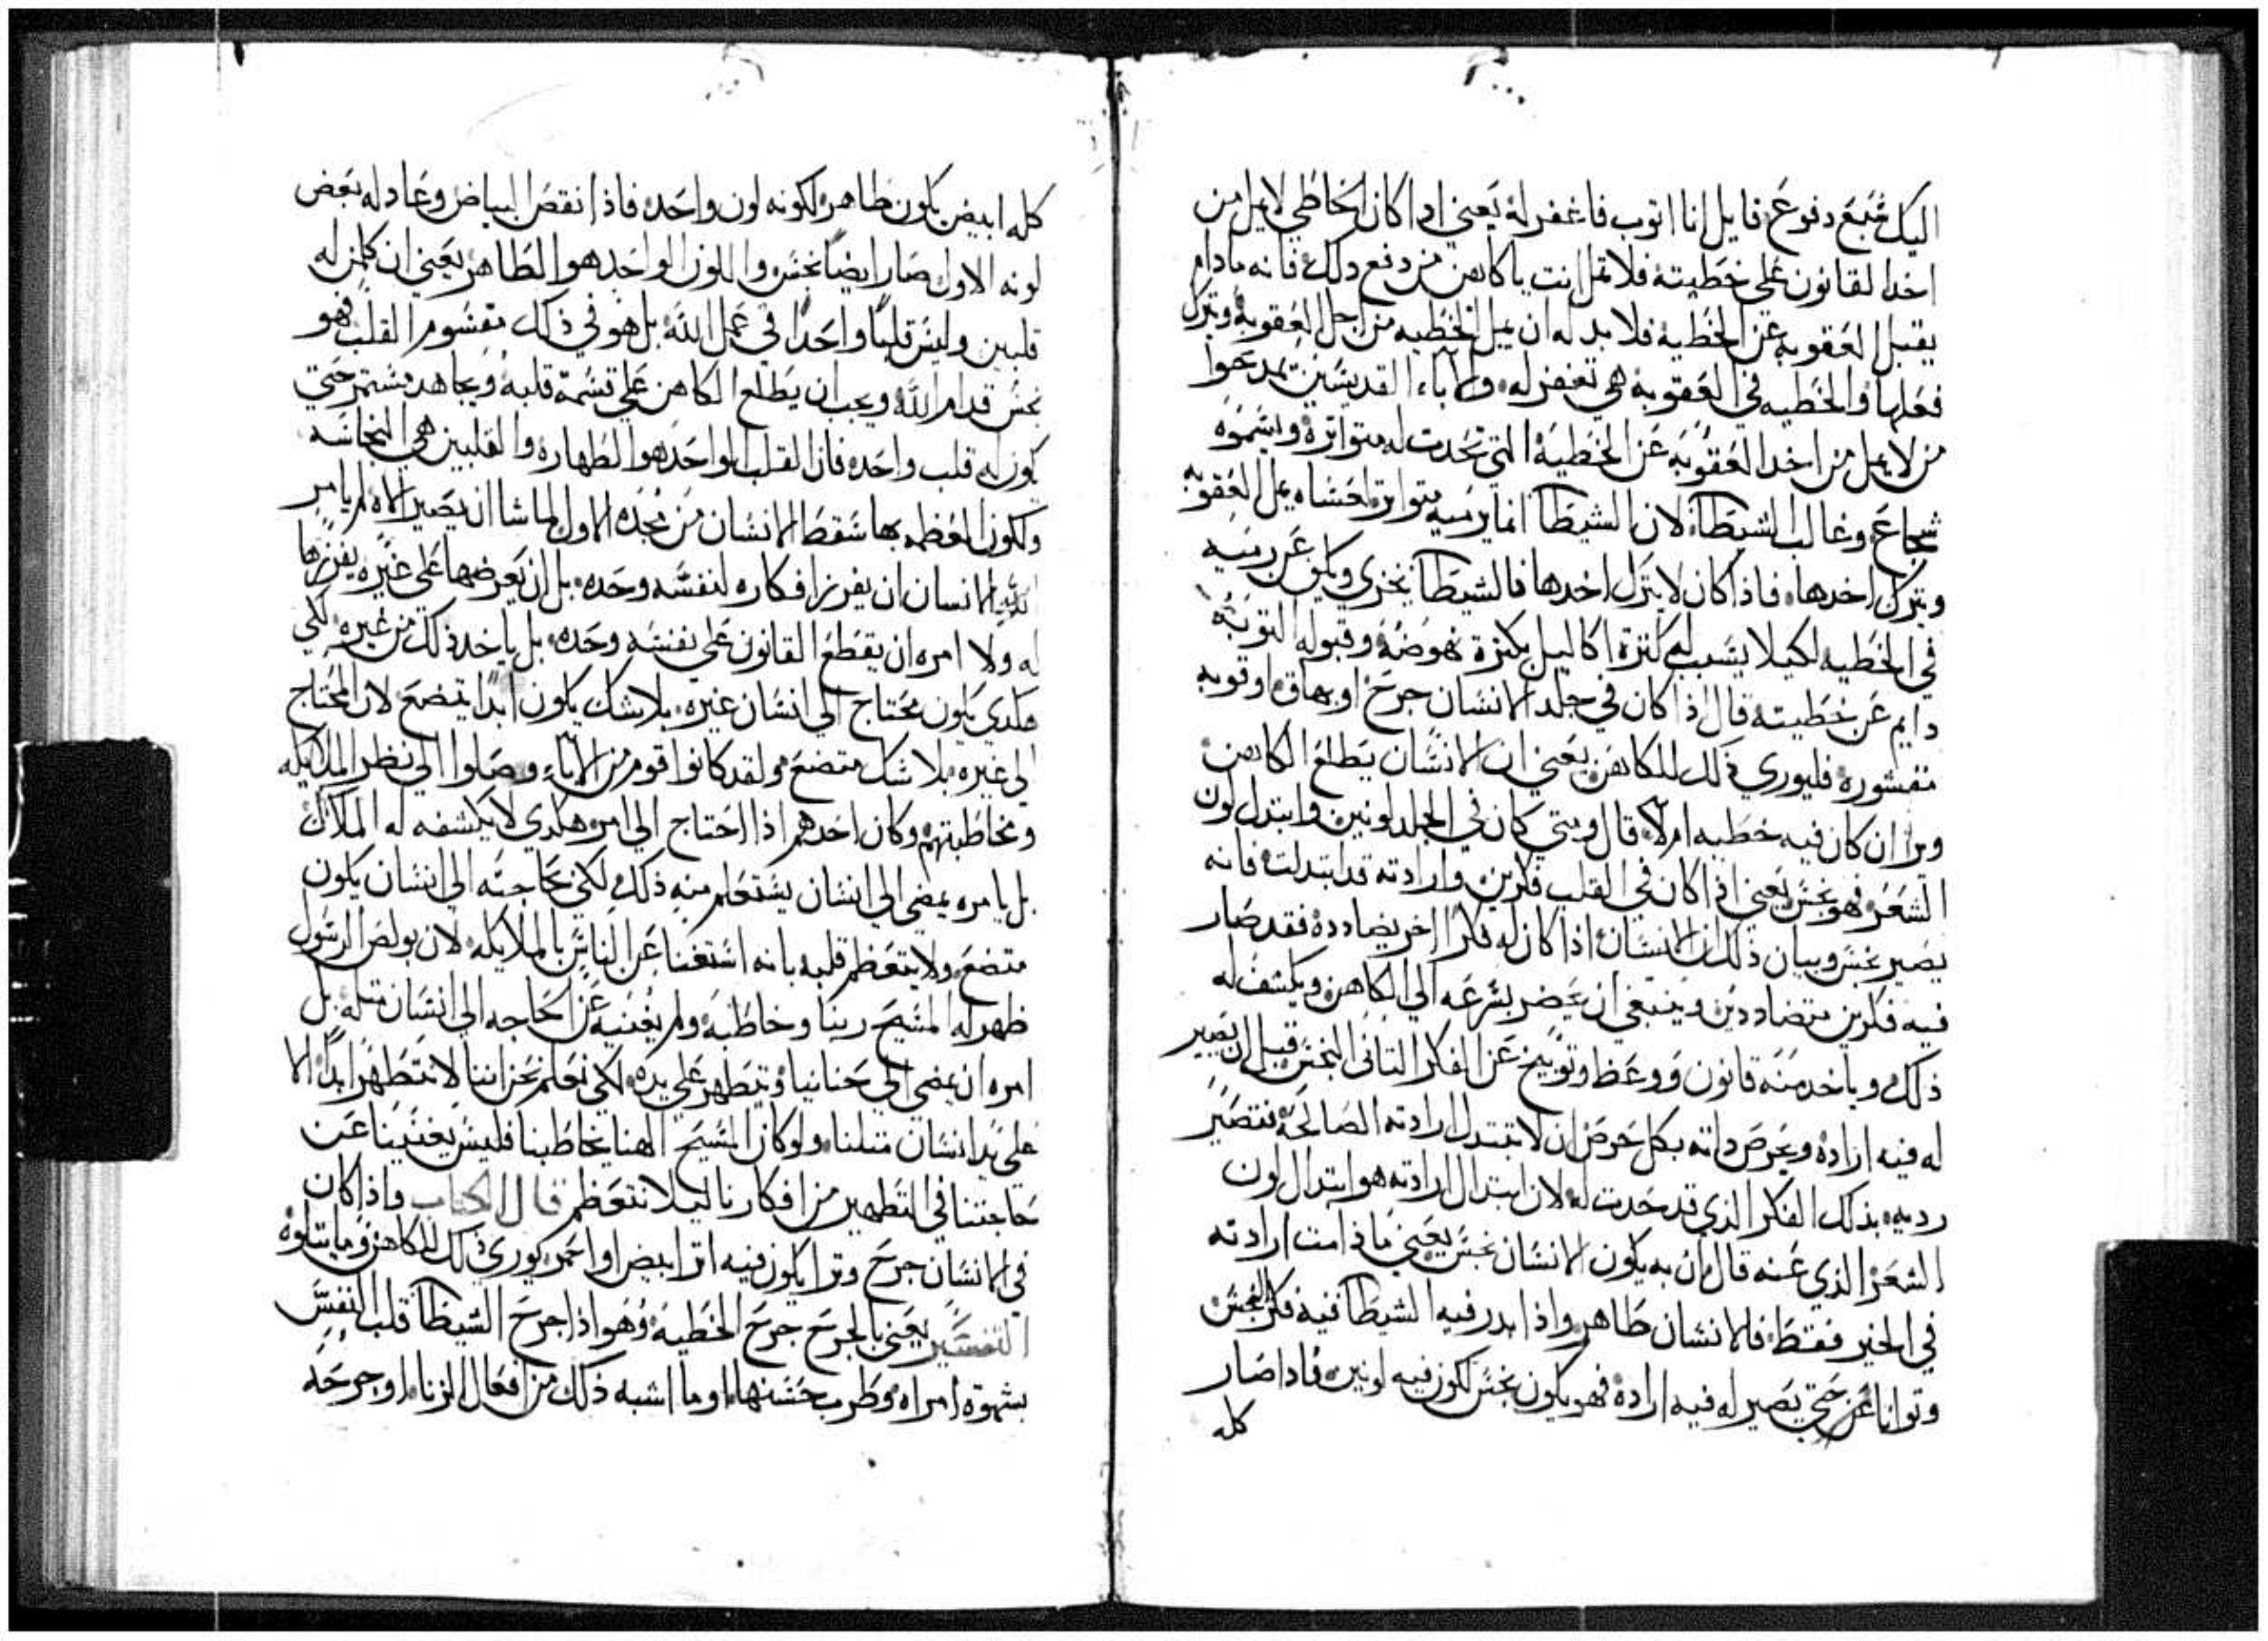 اليك سبع دفوع قايل انا اتوب فاغفر له يعني ادا كان الخاطي لا يمل من
اخد القانون علي خطيته فلا تمل انت يا كاهن من دفع دلك فانه مادام
يقبل العقوبه عن الخطية فلا بد له ان يمل الخطيه من اجل العقوبة ويترك
فعلها والخطيه في العقوبة هي تغفر له والاباء القديسين يمدحوا
من لا يمل من اخد العقوبه عن الخطية التي تحدت له متواترة ويسموه
شجاع وغالب الشيطان لان الشيطان انما يرميه متواتر لعساه يمل العقوبه
ويترك اخدها فاذا كان لا يترك اخدها فالشيطان يخزي ويكف عن رميه
في الخطيه لكيلا يسبب له كترة اكاليل بكترة نهوضه وقبوله التوبة
دايم عن خطيته قال اذا كان في جلد الانسان جرح او بهاق او قوبه
مقشوره فليوري ذلك للكاهن يعني ان الانسان يطلع الكاهن
ويرا ان كان فيه خطيه ام لا قال ومتي كان في الجلد لونين وابتدل لون
الشعر فهو نجس يعني اذا كان في القلب فكرين وارادته قد ابتدلت فانه
يصير نجس وبيان ذلك ان الانسان اذا كان له فكر اخر يضادده فقد صار
فيه فكرين متضاددين وينبغي ان يحضر بسرعه الي الكاهن ويكشف له
ذلك وياخد منه قانون ووعظ وتوبيخ عن الفكر التاني النجس قبل ان يصير
له فيه ارادة ويحرص داته بكل حرص ان لا تبتدل ارادته الصالحة فتصير
رديه بذلك الفكر الذي قد حدت له لان ابتدال ارادته هو ابتدال لون
الشعر الذي عنه قال ان به يكون الانسان نجس يعني ما دامت ارادته
في الخير فقط فالانسان طاهر واذا بدر فيه الشيطان فيه فكر النجس
وتوانا عن حتي يصير له فيه ارادة فهو يكون نجس لكون فيه لونين فادا صار
كله
كله ابيض يكون طاهر لكونه لون واحده فاذا نقص البياض وعاد له بعض
لونه الاول صار ايضا نجس واللون الواحد هو الطاهر يعني ان كلمن له
قلبين وليس قلبا واحدا في عمل الله بل هو في ذلك مقسوم القلب فهو
نجس قدام الله ويجب ان يطلع الكاهن علي قسمة قلبه ويجاهد مستمر حتي
يكون له قلب واحده فان القلب الواحد هو الطهارة والقلبين هي النجاسه
ولكون العظمه بها سقط الانسان من مجده الاول لما شا ان يصير الاه لم يامر
الله الانسان ان يفرز افكاره لنفسه وحده بل ان يعرضها علي غيره يفرزها
له ولا امره ان يقطع القانون علي نفسه وحده بل ياخد ذلك من غيره لكي
هكدي يكون محتاج الي انسان غيره بلا شك يكون ابدا يتضع لان المحتاج
الي غيره بلا شك متضع ولقد كانوا قوم من الاباء وصلوا الي نظر الملايكه
ومخاطبتهم وكان احدهم اذا احتاج الي امر هكدي لا يكشفه له الملاك
بل يامره يمضي الي انسان يستعلم منه ذلك لكي بحاجته الي انسان يكون
متضع ولا يتعظم قلبه بانه استغنا عن الناس بالملايكه لان بولص الرسول
ظهر له المسيح ربنا وخاطبه ولم يغنيه عن الحاجه الي انسان متله بل
امره ان يمضي الي حنانيا ويتطهر علي يده لكي نعلم نحن اننا لا نتطهر ابدا الا
علي يد انسان متلنا ولو كان المسيح الهنا يخاطبنا فليس يغنينا عن
حاجتنا في التطهير من افكارنا ليلا نتعظم قال الكتاب فاذا كان
في الانسان جرح وترا يكون فيه اترا بيض او احمر يوري ذلك للكاهن وما يتلوه
التفسير يعني بالجرح جرح الخطية وهو اذا جرح الشيطان قلب النفس
بشهوة امراه وطرب بحسنها او ما اشبه ذلك من افعال الزنا او جرحه